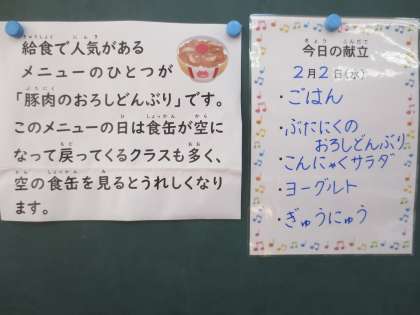 給食で人気がある
メニューのひとつが
「豚肉のおろしどんぶり」です。
このメニューの日は食缶が空に
なって戻ってくるクラスも多く、
空の食缶を見るとうれしくなり
ます。
今日の献立
2月2日(水)
・ごはん
・ぶたにくの
おろしどんぶり
・こんにゃくサラダ
・ヨーグルト
・ぎゅうにゅう